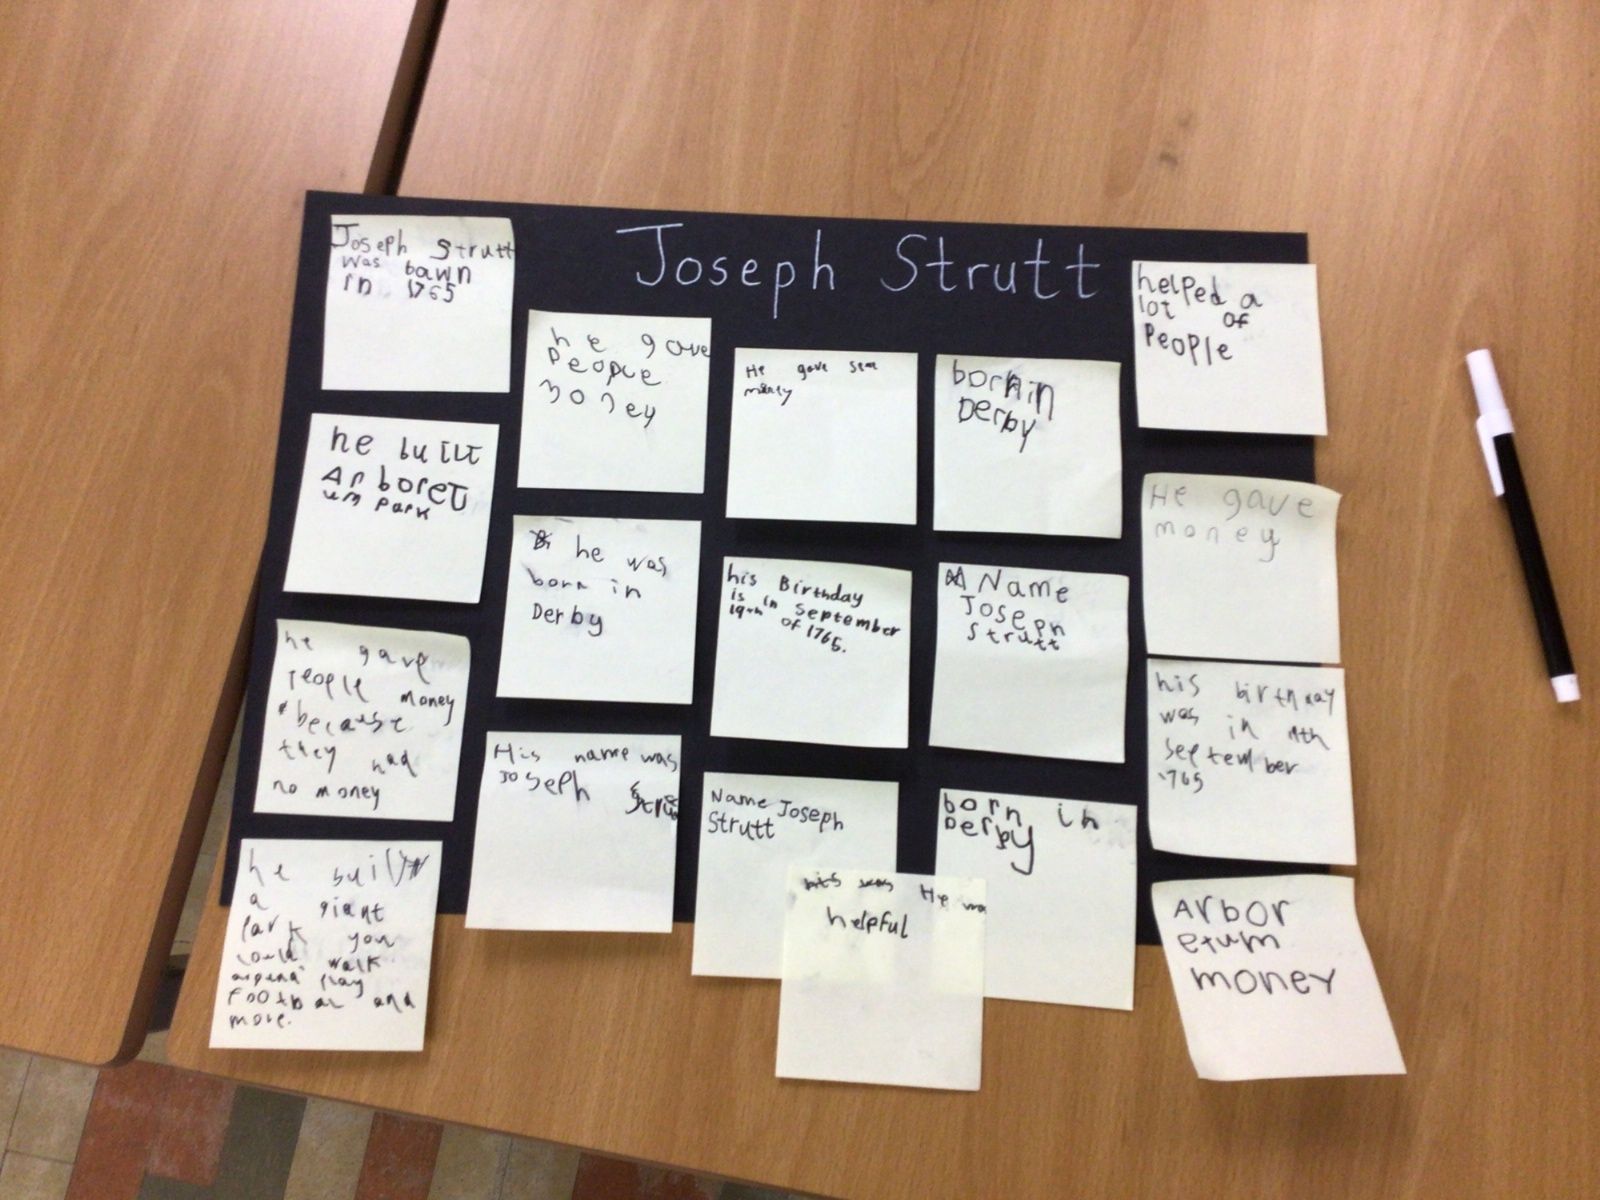 Joseph Strutt
Joseph Strutt
was bawn
in 1765
he built
Arboret
um park
he gave
people money
because
they had
no money
he built
a giant
park you
could walk
around play
footbal and
more.
he gave
people
money
he was
born in
Derby
His name was
Joseph
He gave some
money
his Birthday
is in September
19th of 1765.
Name Joseph
Strutt
He was
helpful
born in
Derby
Name
Joseph
Strutt
born in
Derby
helped a
lot of
people
He gave
money
his birthday
was in
September
1765
Arbor
etum
money